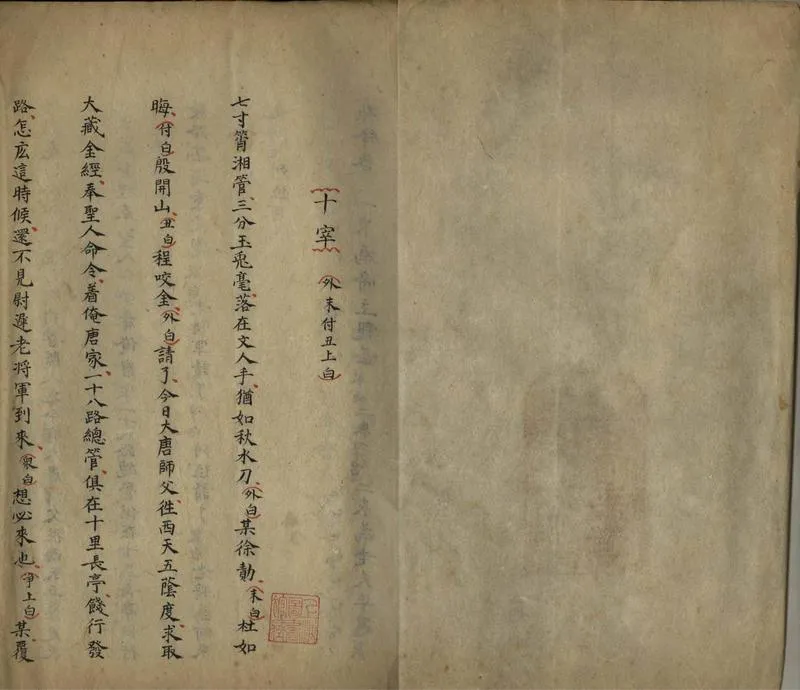 十宰 外末付丑上白
七寸霄湘管三分玉兎毫落在文人手猶如秋水刀外白某徐勣末白杜如
晦付白殷開山丑白程咬金外白請了今日大唐師父徃西天五蔭度求取
大藏金經奉聖人命令着俺唐家一十八路總管俱在十里長亭餞行發
路怎広這時候還不見尉遲老將軍到來衆白想必來也淨上白某覆